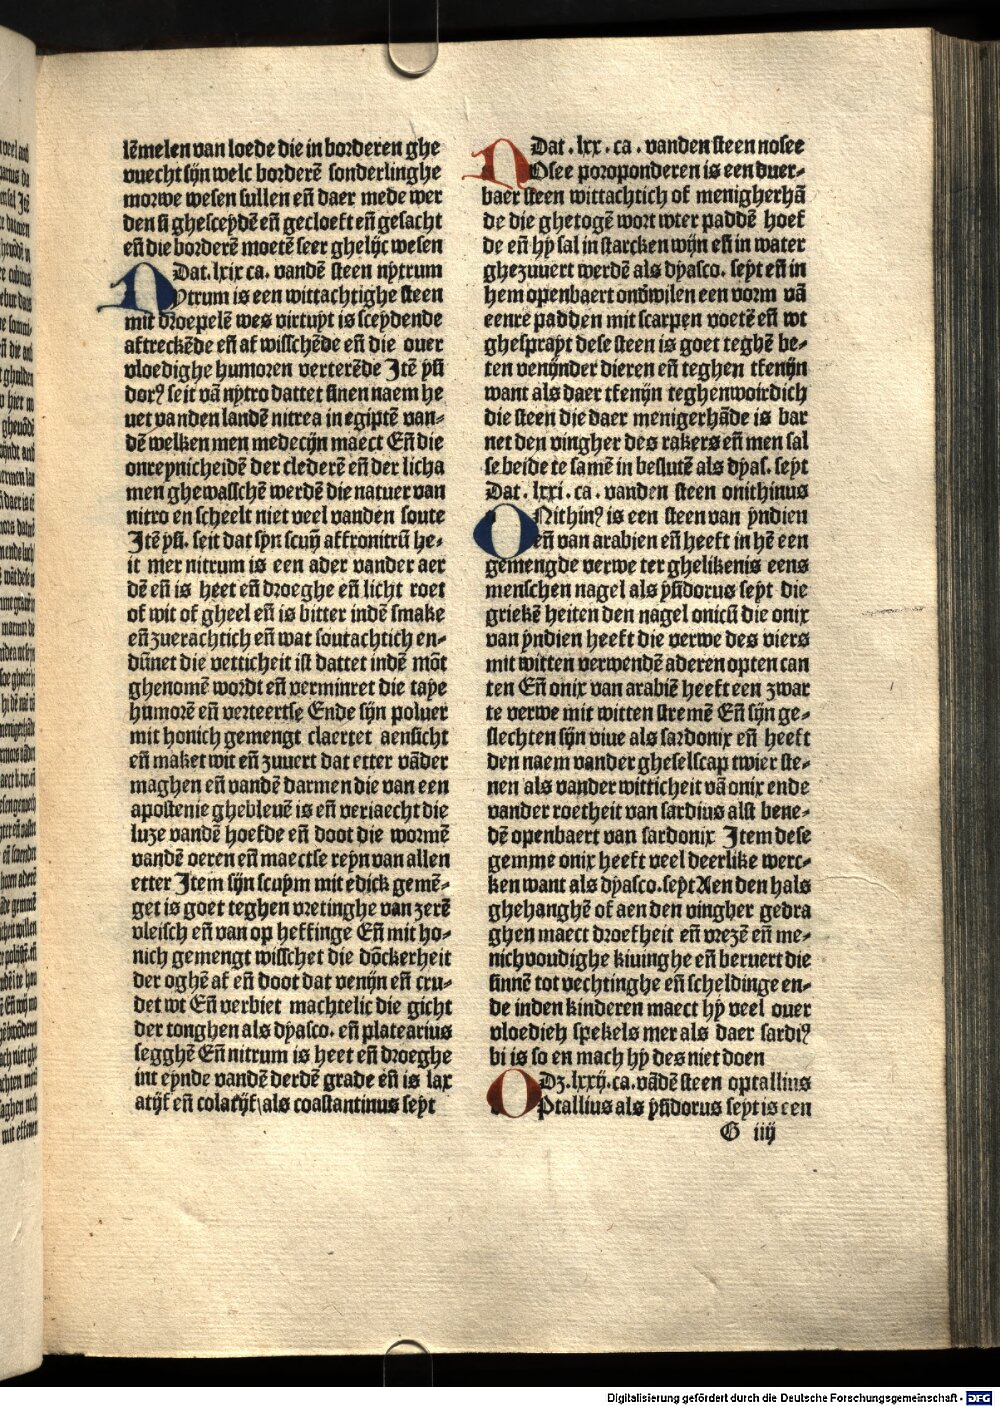 lēmelen van loede die in borderen ghe
vuecht sijn welc borderē sonderlinghe
morwe wesen sullen eñ daer mede wer
den si ghesceydē eñ gecloeft eñ gesacht
eñ die borderē moetē seer ghelijc wesen
Dat. lxix ca. vandē steen nytrum
Nytrum is een wittachtighe steen
mit droepelē wes virtuyt is sceydende
aftreckēde eñ af wisschēde eñ die over
vloedighe humoren verterēde Itē ysi
dorꝰ seit vā nytro dattet sinen naem he
uet van den landē nitrea in egiptē van-
dē welken men medecijn maect Eñ die
onreynicheidē der clederē eñ der licha
men ghewasschē werdē die natuer van
nitro en scheelt niet veel vanden soute
Itē ysi. seit dat syn scuȳ affronitrū he-
it mer nitrum is een ader vander aer
dē eñ is heet eñ droeghe eñ licht roet
of wit of gheel eñ is bitter indē smake
eñ zuerachtich eñ wat soutachtich en-
dūnet die vetticheit ist dattet indē mōt
ghenomē wordt eñ verminret die taye
humorē eñ verteertse Ende sijn poluer
mit honich gemengt claertet aensicht
eñ maket wit eñ zuvert dat etter vāder
maghen eñ vandē darmen die van een
apostenie ghebleuē is eñ veriaecht die
luze vandē hoefde eñ doot die wormē
vandē oeren eñ maectse reyn van allen
etter Item sijn scuym mit edick gemē-
get is goet teghen vretinghe van zerē
vleisch eñ van op heffinge Eñ mit ho-
nich gemengt wisschet die dōckerheit
der oghē af eñ doot dat venijn eñ cru-
det wt Eñ verbiet machtelic die gicht
der tonghen als dyasco. eñ platearius
segghē Eñ nitrum is heet eñ droeghe
int eynde vandē derdē grade eñ is lax
atijf eñ colatijf als coastantinus seyt
Dat. lxx. ca. vanden steen nosee
NOsee poroponderen is een duer-
baer steen wittachtich of menigherhā
de die ghetogē wort wter paddē hoef
de eñ hy sal in starcken wijn eñ in water
ghezuuert werdē als dyasco. seyt eñ in
hem openbaert ondwilen een vorm vā
eenre padden mit scarpen voetē eñ wt
ghesprayt dese steen is goet teghē be-
ten venijnder dieren eñ teghen tfenijn
want als daer tfenijn teghenwoirdich
die steen die daer menigerhāde is bar
net den vingher des rakers eñ men sal
se beide te samē in beslutē als dyas. seyt
Dat. lxxi. ca. vanden steen onithinus
ONithinꝰ is een steen van yndien
eñ van arabien eñ heeft in hē een
gemengde verwe ter ghelikenis eens
menschen nagel als ysidorus seyt die
griekē heiten den nagel onicū die onix
van yndien heeft die verwe des viers
mit witten verwendē aderen opten can
ten Eñ onix van arabiē heeft een zwar
te verwe mit witten stremē Eñ sijn ge-
slechten sijn viue als sardonix eñ heeft
den naem vander gheselscap twier ste-
nen als vander witticheit vā onix ende
vander roetheit van sardius alst bene-
dē openbaert van sardonix Item dese
gemme onix heeft veel deerlike werc-
ken want als dyasco. seyt Aen den hals
ghehanghē of aen den vingher gedra
ghen maect droefheit eñ vrezē eñ me-
nichvoudighe kiuinghe eñ beruert die
sinnē tot vechtinghe eñ scheldinge en-
de inden kinderen maect hy veel over
vloedich spekels mer als daer sardiꝰ
bi is so en mach hy des niet doen
Dꝫ. lxxij. ca. vādē steen optallius
OPtallius als ysidorus seyt is een
G iiij
Digitalisierung gefördert durch die Deutsche Forschungsgemeinschaft - DFG